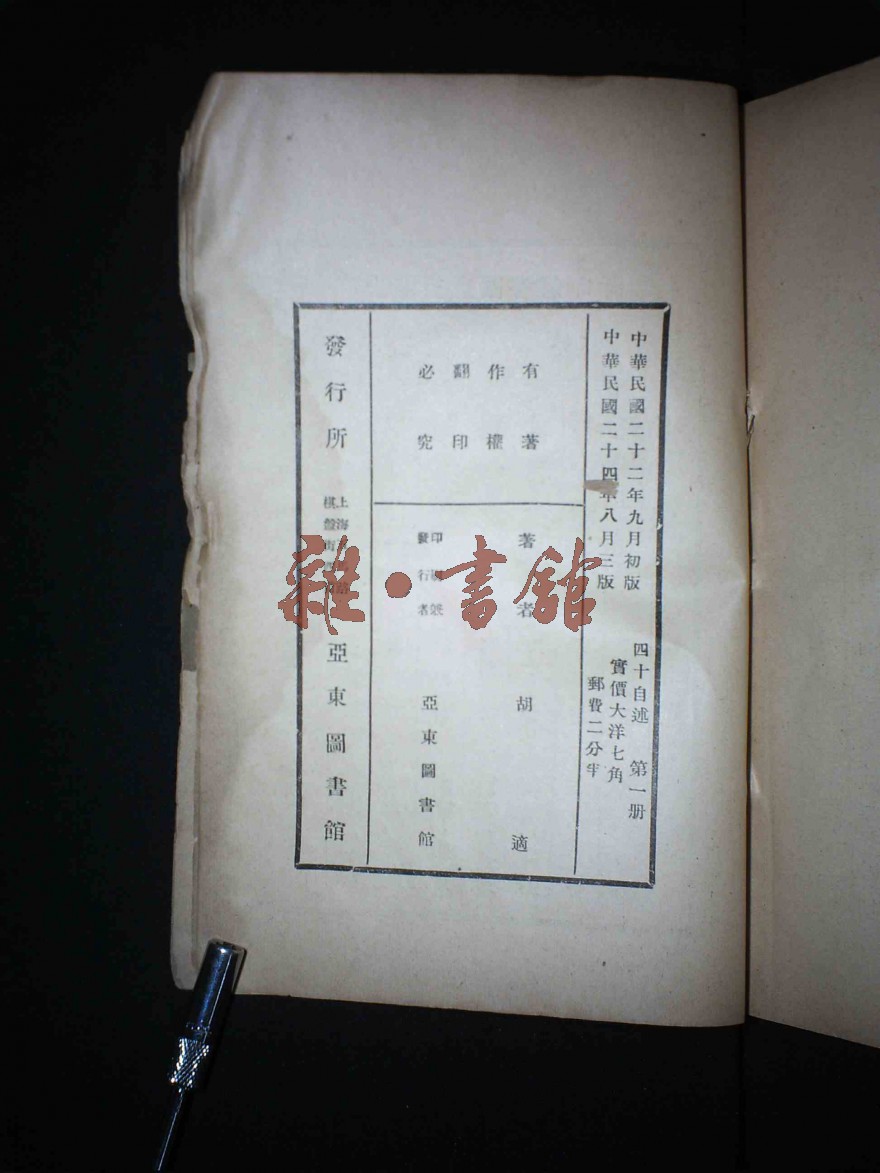 中華民國二十二年九月初版
中華民國二十四年八月三版
四十自述　第一册
實價大洋七角
郵費二分半
有著
作權
翻印
必究
著者　胡適
印刷兼
發行者
亞東圖書館
發行所
上海
棋盤街
亞東圖書館
雜·書館